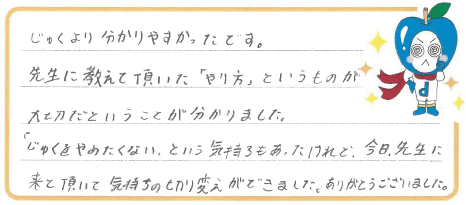 じゅくより分かりやすかったです。
先生に教えて頂いた「やり方」というものが
大切だということが分かりました。
「じゅくをやめたくない、という気持ちもあったけれど、今日、先生に
来て頂いて気持ちの切り変えができました。ありがとうございました。
d